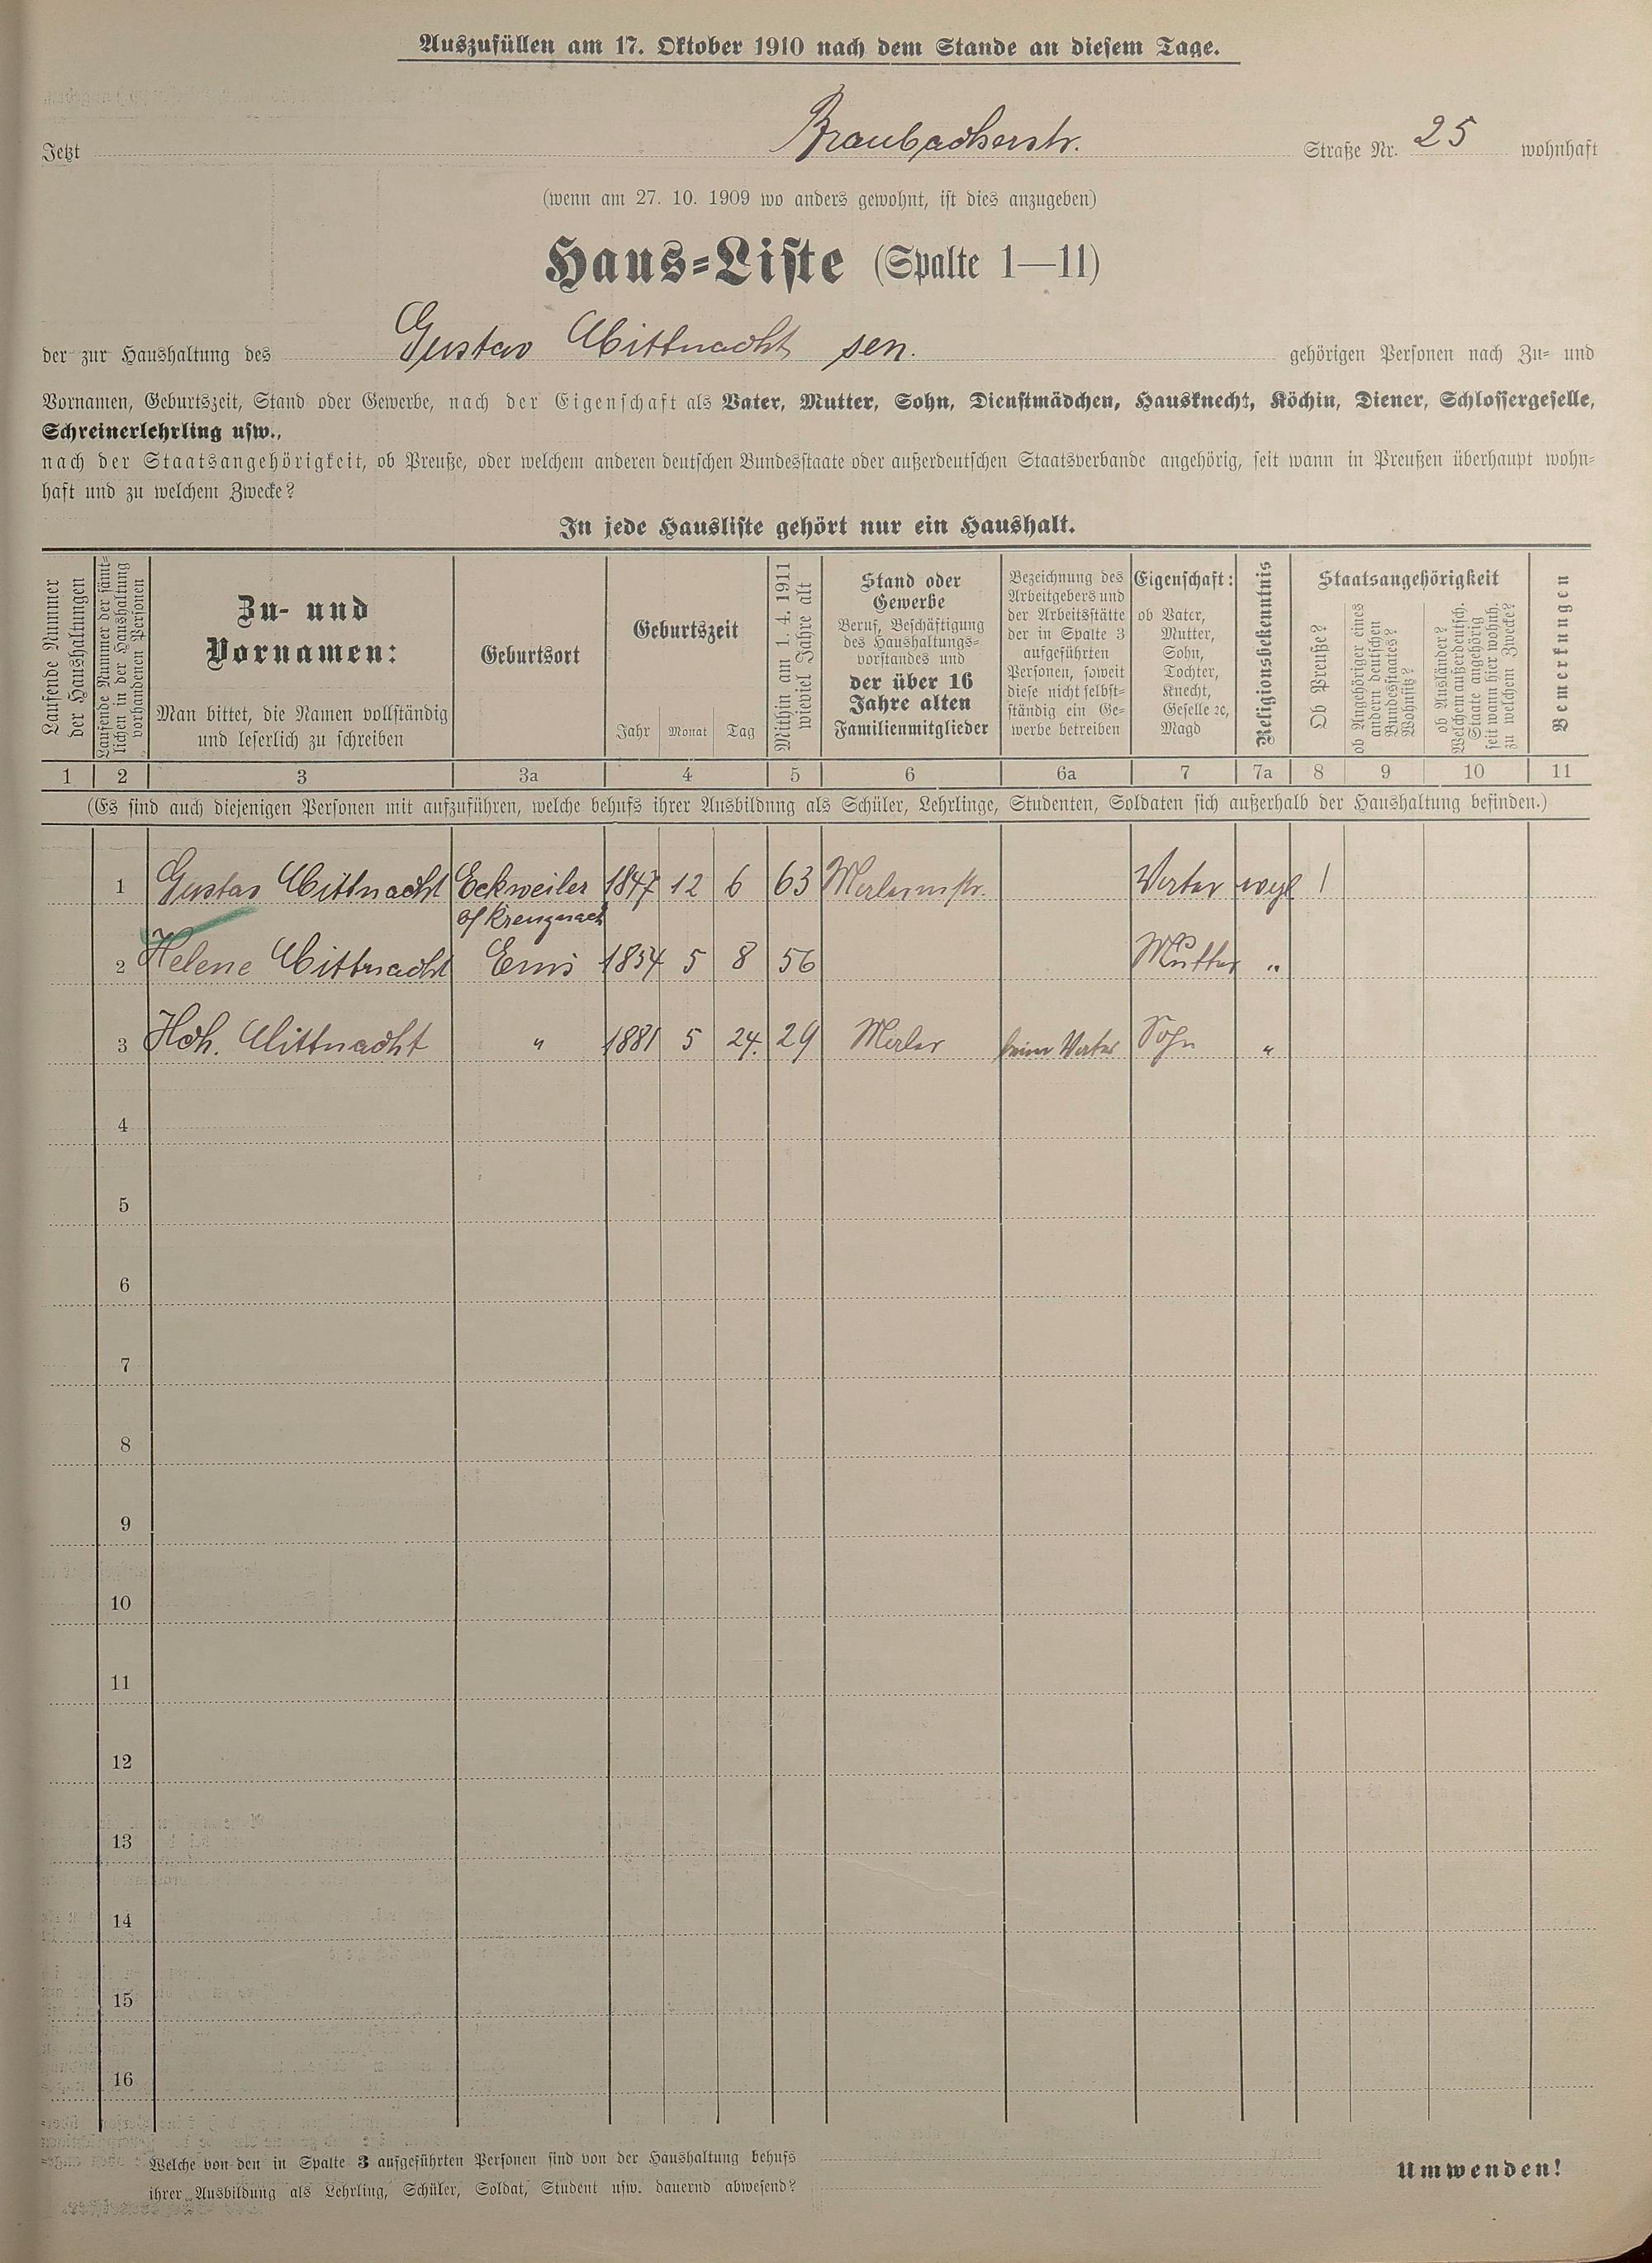 Auszufüllen am 17. Oktober 1910 nach dem Stande an diesem Tage.
Jetzt Braubacherstr. Straße Nr. 25 wohnhaft
(wenn am 27. 10. 1909 wo anders gewohnt, ist dies anzugeben)
Haus-Liste (Spalte 1—11)
der zur Haushaltung des Gustav Mittnacht sen. gehörigen Personen nach Zu- und
Vornamen, Geburtszeit, Stand oder Gewerbe, nach der Eigenschaft als Vater, Mutter, Sohn, Dienstmädchen, Hausknecht, Köchin, Diener, Schlossergeselle,
Schreinerlehrling usw.,
nach der Staatsangehörigkeit, ob Preuße, oder welchem anderen deutschen Bundesstaate oder außerdeutschen Staatsverbande angehörig, seit wann in Preußen überhaupt wohn-
haft und zu welchem Zwecke?
In jede Hausliste gehört nur ein Haushalt.
Laufende Nummer
der Haushaltungen
Laufende Nummer der sämt-
lichen in der Haushaltung
vorhandenen Personen
Zu- und
Vornamen:
Man bittet, die Namen vollständig
und leserlich zu schreiben
Geburtsort
Geburtszeit
Jahr Monat Tag
Mithin am 1. 4. 1911
wieviel Jahre alt
Stand oder
Gewerbe
Beruf, Beschäftigung
des Haushaltungs-
vorstandes und
der über 16
Jahre alten
Familienmitglieder
Bezeichnung des
Arbeitgebers und
der Arbeitsstätte
der in Spalte 3
aufgeführten
Personen, soweit
diese nicht selbst-
ständig ein Ge-
werbe betreiben
Eigenschaft:
ob Vater,
Mutter,
Sohn,
Tochter,
Knecht,
Geselle ꝛc,
Magd
Religionsbekenntnis
Staatsangehörigkeit
Ob Preuße?
ob Angehöriger eines
andern deutschen
Bundesstaates?
Wohnsitz?
ob Ausländer?
Welchem außerdeutsch.
Staate angehörig
seit wann hier wohnh.
zu welchem Zwecke?
Bemerkungen
1 2 3 3a 4 5 6 6a 7 7a 8 9 10 11
(Es sind auch diejenigen Personen mit aufzuführen, welche behufs ihrer Ausbildung als Schüler, Lehrlinge, Studenten, Soldaten sich außerhalb der Haushaltung befinden.)
1 Gustav Mittnacht Eckweiler 1847 12 6 63 Malermstr. Vater evgl 1
b/ Kreuznach
2 Helene Mittnacht Ems 1854 5 8 56 Mutter "
3 Hch. Mittnacht " 1881 5 24. 29 Maler beim Vater Sohn "
4
5
6
7
8
9
10
11
12
13
14
15
16
Welche von den in Spalte 3 aufgeführten Personen sind von der Haushaltung behufs
ihrer Ausbildung als Lehrling, Schüler, Soldat, Student usw. dauernd abwesend?
Umwenden!